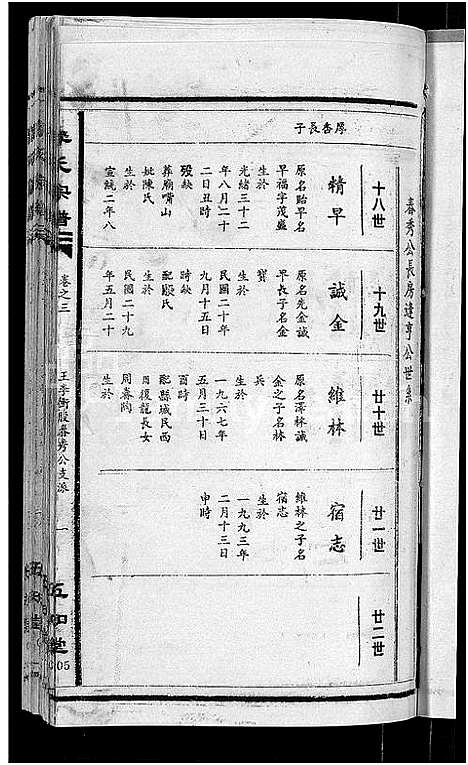 春秀公長房達亨公世系
十八世
厚杏長子
精早
原名貽早名
早福字茂盛
生於
光緒三十二
年八月二十
二日丑時
歿缺
葬廟嘴山
妣陳氏
生於
宣統二年八
十九世
誠金
原名先金誠
早長子名金
寶
生於
民國二十年
九月十五日
時缺
配殷氏
生於
民國二十九
年五月二十
廿十世
維林
原名澤林誠
金之子名林
兵
生於
一九六七年
五月三十日
酉時
配縣城民西
呂後龍長女
生於
廿一世
宿志
維林之子名
宿志
生於
一九九三年
二月十三日
申時
廿二世
氏宗譜
卷之三
王李街殷春秀公支派
一
五知堂
05